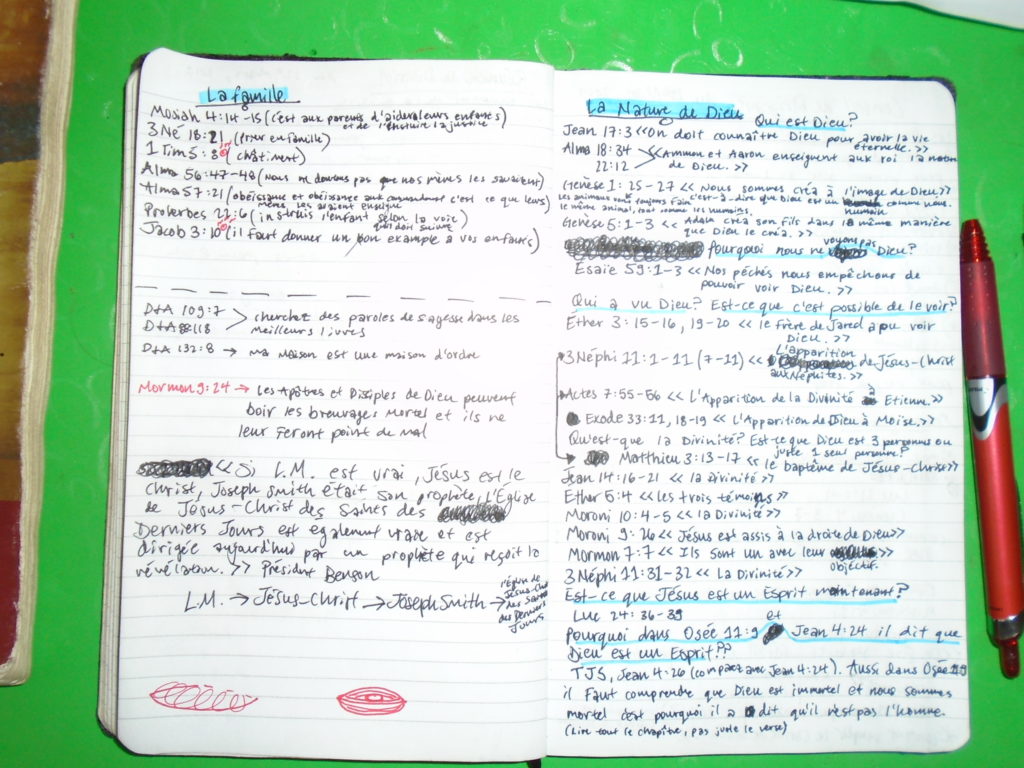 La famille
Mosiah 4:14-15 (C'est aux parents d'aider à leurs enfants)
et de l'instruire la justice
3 Ne 18:21 (Prier en famille)
1 Tim 5:8 (châtiment)
Alma 56:47-48 (nous ne doutons pas que nos mères les savaient)
Alma 57:21 (obéissance et obéissance aux commandements c'est ce que leurs)
mères les avaient enseigné
Proverbes 22:6 (instruis l'enfant selon la voie)
qu'il doit suivre
Jacob 3:10 (il faut donner un bon example à vos enfants)
D+A 109:7
D+A 88:118
cherchez des paroles de sagesse dans les
meilleurs livres
D+A 132:8 → ma maison est une maison d'ordre
Mormon 9:24 → les Apôtres et Disciples de Dieu peuvent
boir les breuvages mortel et ils ne
leur feront point de mal
<<Si L.M. est vrai, Jésus est le
Christ, Joseph Smith était son prophète, l'Église
de Jésus-Christ des Saints des
Derniers Jours est egalement vraie et est
dirigée aujourd'hui par un prophète qui reçoit la
révélation.>> Président Benson
L.M. → Jésus-Christ → Joseph Smith →
l'Église de
Jésus-Christ
des Saints
des Derniers
Jours
La Nature de Dieu
Qui est Dieu?
Jean 17:3 <<On doit connaître Dieu pour avoir la vie
éternelle.>>
Alma 18:34
22:12
<<Ammon et Aaron enseignent aux roi la nature
de Dieu.>>
Genèse 1:25-27 <<Nous sommes créa à l'image de Dieu>>
Les animaux vont toujours faire c'est-à-dire que Dieu est un comme nous.
le même animal, tout comme les humains. humain
Genèse 5:1-3 <<Adam créa son fils dans la même manière
que Dieu le créa.>>
pourquoi nous ne voyons pas Dieu?
Esaïe 59:1-3 <<Nos péchés nous empêchons de
pouvoir voir Dieu.>>
Qui a vu Dieu? Est-ce que c'est possible de le voir?
Éther 3:15-16, 19-20 <<le frère de Jared a pu voir
Dieu.>>
3 Néphi 11:1-11 (7-11) << L'apparition de Jésus-Christ
aux Néphites.>>
Actes 7:55-56 <<L'Apparition de la Divinité à Etienne.>>
Exode 33:11, 18-19 <<L'Apparition de Dieu à Moïse.>>
Qu'est-que la Divinité? Est-ce que Dieu est 3 personnes ou
juste 1 seul personne?
Matthieu 3:13-17 <<le baptême de Jésus-Christ>>
Jean 14:16-21 <<la Divinité>>
Ether 5:4 <<les trois témoins>>
Moroni 10:4-5 <<la Divinité>>
Moroni 9:26 <<Jésus est assis à la droite de Dieu>>
Mormon 7:7 <<Ils sont un avec leur >>
objectif.
3 Néphi 11:31-32 <<La Divinité>>
Est-ce que Jésus est un Esprit maintenant?
Luc 24:36-39
Pourquoi dans Osée 11:9 et Jean 4:24 il dit que
Dieu est un Esprit??
TJS, Jean 4:26 (compare avec Jean 4:24). Aussi dans Osée 11:9
il faut comprendre que Dieu est immortel et nous sommes
mortel c'est pourquoi il a dit qu'il n'est pas l'homme.
(Lire tout le chapître, pas juste le verse)